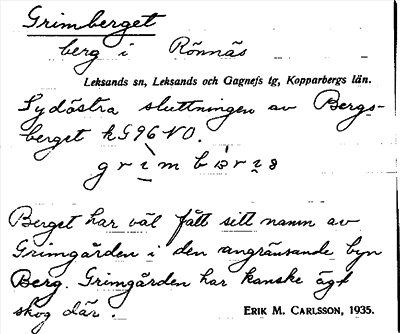 Grimberget
berg i Rönnäs
Leksands sn, Leksands och Gagnefs tg, Kopparbergs län.
Sydöstra sluttningen av Bergs-
berget k G96 NO.
Berget har väl fått sitt namn av
Grimgården i den angränsande byn
Berg. Grimgården har kanske ägt
skog där.
ERIK M. CARLSSON, 1935.